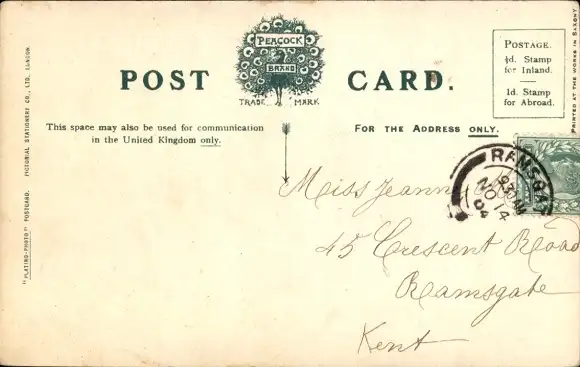 POST CARD.
PEACOCK
BRAND
TRADE MARK
This space may also be used for communication
in the United Kingdom only.
FOR THE ADDRESS ONLY.
POSTAGE.
½d. Stamp
for Inland.
1d. Stamp
for Abroad.
PRINTED AT THE WORKS IN SAXONY
"PLATINO-PHOTO" POSTCARD. PICTORIAL STATIONERY CO., LTD., LONDON
RAMSGATE
9 30 AM
NO 14
04
Miss Jeanny
45 Crescent Road
Ramsgate
Kent